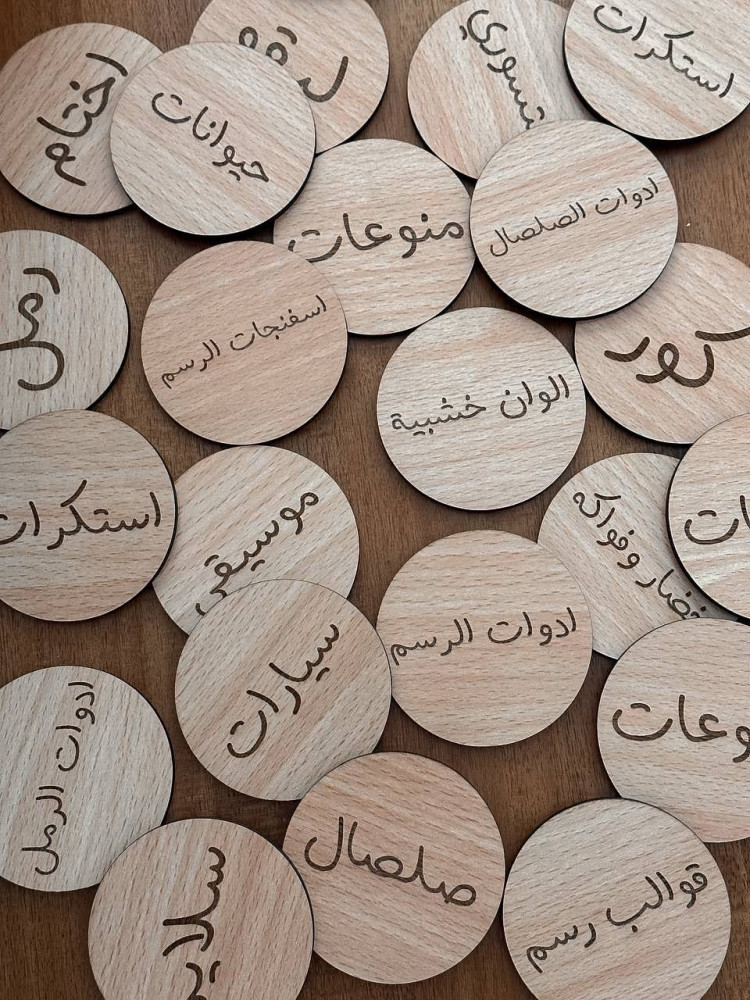 استكرات
اختام
حيوانات
ادوات الصلصال
منوعات
رمل
اسفنجات الرسم
كور
الوان خشبية
استكرات
موسيقى
خضار وفواكه
ادوات الرسم
سيارات
ادوات الرمل
صلصال
قوالب رسم